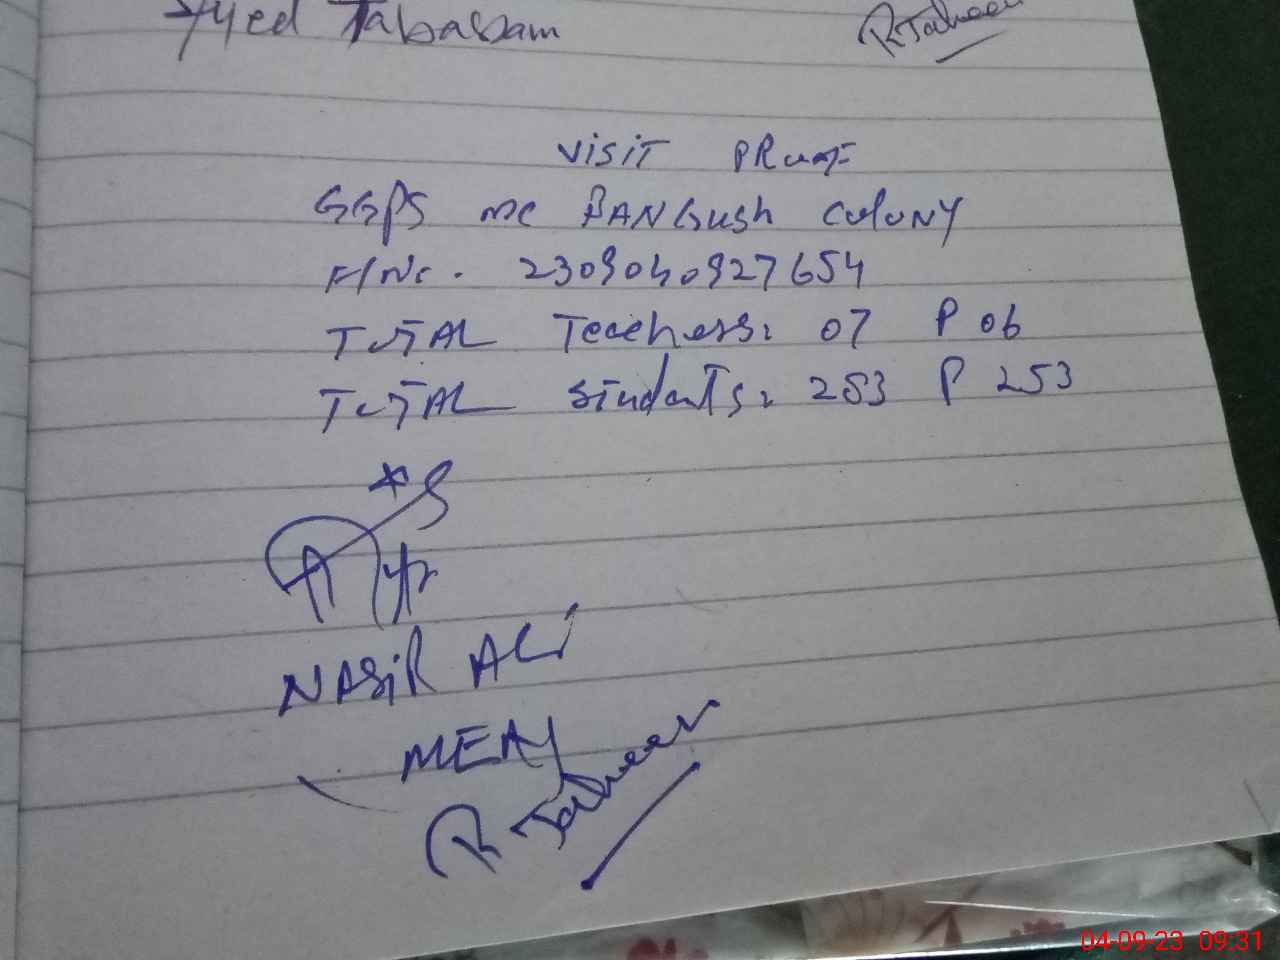 Syed Tabassam
R Taheer
VISIT PROOF
GGPS MC BANGUSH COLONY
F/No. 2309040927654
TOTAL Teachers: 07 P 06
TOTAL Students: 253 P 253
NASIR ALI
MEA
R Taheer
04-09-23 09:31